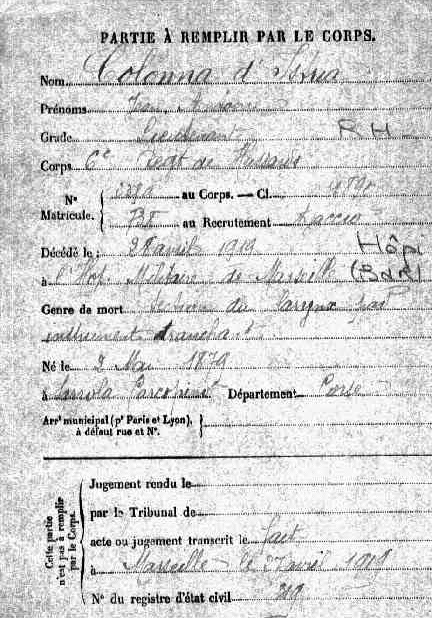 PARTIE À REMPLIR PAR LE CORPS.
Nom Colonna d'Istria
Prénoms Jean
Grade Lieutenant RH
Corps 6e Regt de Hussards
No Matricule. au Corps. — Cl.
au Recrutement Ajaccio
Décédé le 28 avril 1919 Hôpi
à l'Hop. Militaire de Marseille (BdR)
Genre de mort du larynx par
instrument tranchant
Né le 2 Mai 1879
à Département Corse
Arrt municipal (pr Paris et Lyon),
à défaut rue et No.
Cette partie
n'est pas à remplir
par le Corps.
Jugement rendu le
par le Tribunal de
acte ou jugement transcrit le
à Marseille le avril 1919
No du registre d'état civil 219